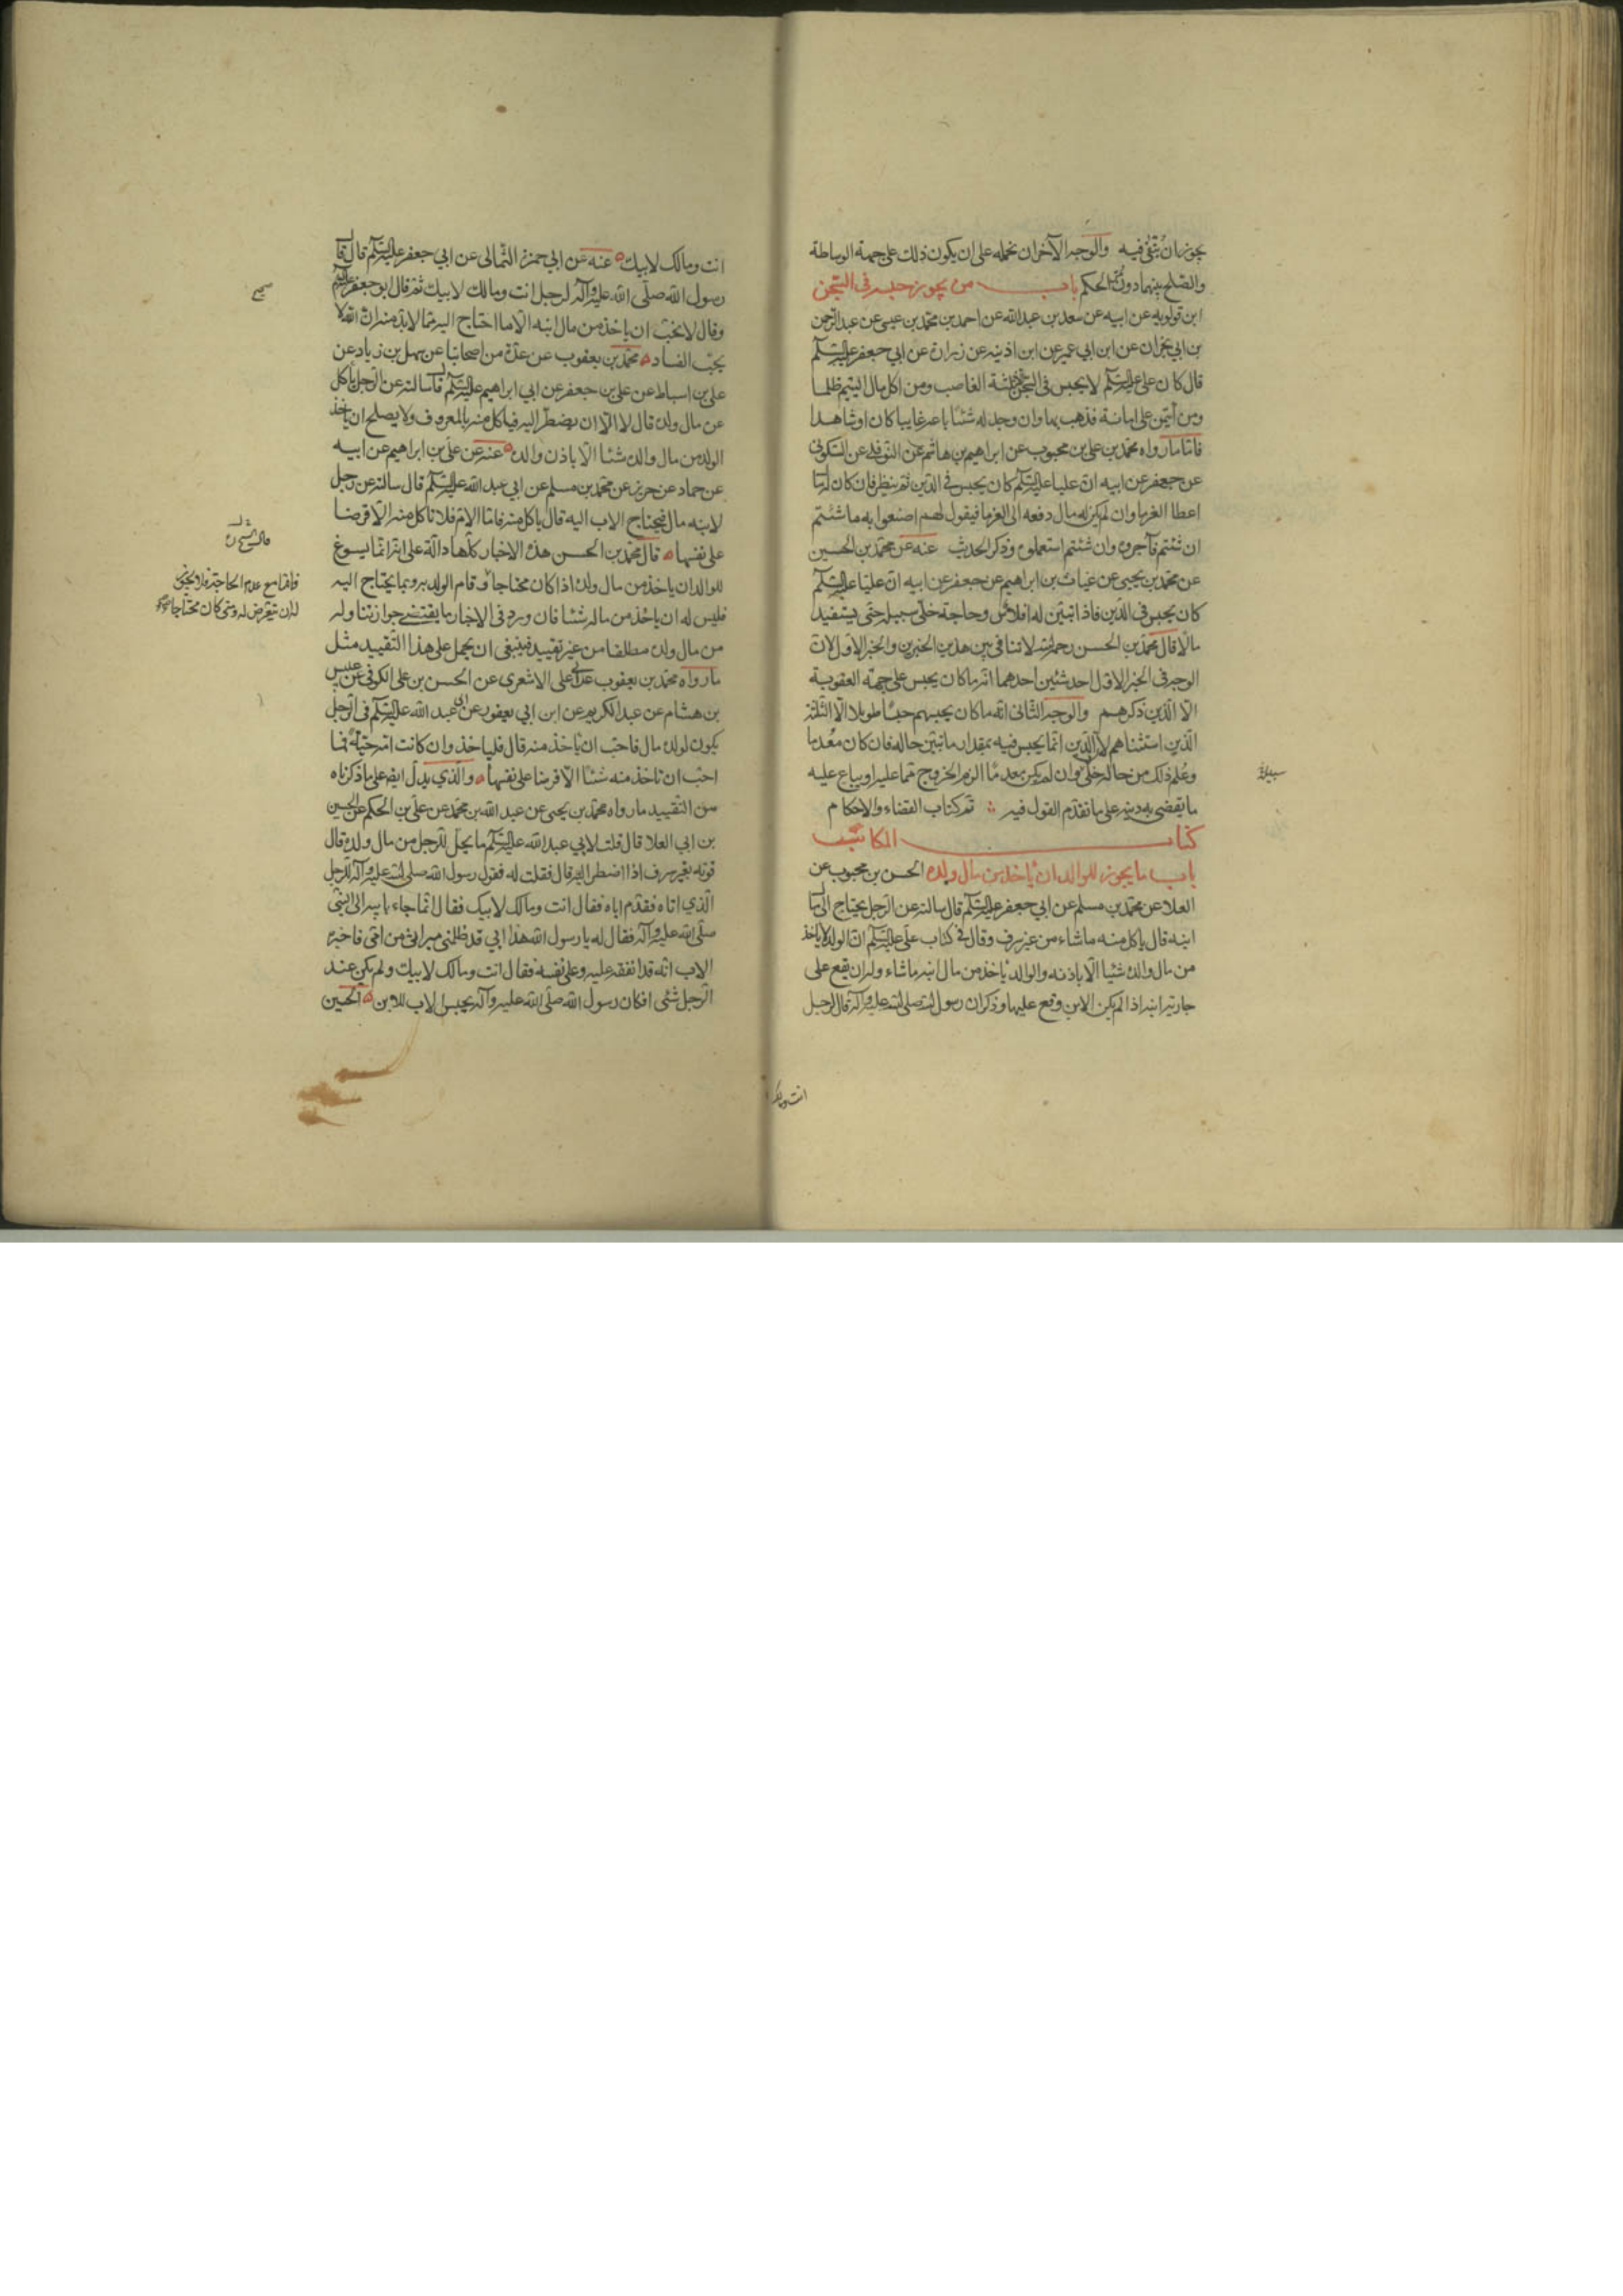 يجوز ان يتقى فيه والوجه الآخر ان نحمله على ان يكون ذلك على جهة الوساطة
والصلح بينهما دون الحكم باب من يجوز حبسه فى السجن
ابن قولويه عن ابيه عن سعد بن عبدالله عن احمد بن محمد بن عيسى عن عبدالرحمن
بن ابي نجران عن ابن ابي عمير عن ابن اذينه عن زرارة عن ابي جعفر عليه السلم
قال كان على عليه السلم لا يحبس فى السجن الا ثلثة الغاصب ومن اكل مال اليتيم ظلما
ومن أئتمن على امانة فذهب بها وان وجد له شئا باعه غايبا كان او شاهدا
فاما ما رواه محمد بن على بن محبوب عن ابراهيم بن هاشم عن النوفلى عن السكونى
عن جعفر عن ابيه ان عليا عليه السلم كان يحبس فى الدين ثم ينظر فان كان له مال
اعطا الغرما وان لم يكن له مال دفعه الى الغرما فيقول لهم اصنعوا به ما شئتم
ان شئتم فآجروه وان شئتم استعملوه وذكر الحديث عنه عن محمد بن الحسين
عن محمد بن يحيى عن غياث بن ابراهيم عن جعفر عن ابيه ان عليا عليه السلم
كان يحبس فى الدين فاذا تبين له افلاس وحاجة خلى سبيله حتى يستفيد
مالا قال محمد بن الحسن رحمه الله لا تنافى بين هذين الخبرين والخبر الاول لان
الوجه فى الخبر الاول احد شئين احدهما انه ما كان يحبس على جهة العقوبة
الا الذين ذكرهم والوجه الثانى انه ما كان يحبسهم حبسا طويلا الا الثلثة
الذين استثناهم لان الدين انما يحبس فيه بمقدار ما تبين حاله فان كان معدما
وعلم ذلك من حاله خلى وان لم يكن معدما الزم الخروج مما عليه او يباع عليه
سبيله
ما يقضى به دينه على ما تقدم القول فيه تم كتاب القضاء والاحكام
كتاب المكاسب
باب ما يجوز للوالد ان ياخذ من مال ولده الحسن بن محبوب عن
العلا عن محمد بن مسلم عن ابي جعفر عليه السلم قال سالته عن الرجل يحتاج الى مال
ابنه قال ياكل منه ما شاء من غير سرف وقال فى كتاب على عليه السلم ان الولد لا ياخذ
من مال والده شيئا الا باذنه والوالد ياخذ من مال ابنه ما شاء وله ان يقع على
جارية ابنه اذا لم يكن الابن وقع عليها وذكر ان رسول الله صلى الله عليه وآله قال لرجل
انت ومالك
انت ومالك لابيك عنه عن ابي حمزة الثمالى عن ابي جعفر عليه السلم قال قال
رسول الله صلى الله عليه وآله لرجل انت ومالك لابيك ثم قال ابو جعفر عليه السلم
وقال لا نحب ان ياخذ من مال ابنه الا ما احتاج اليه مما لا بد منه ان الله لا
يحب الفساد محمد بن يعقوب عن عدة من اصحابنا عن سهل بن زياد عن
على بن اسباط عن على بن جعفر عن ابي ابراهيم عليه السلم قال سالته عن الرجل ياكل
من مال ولده قال لا الا ان يضطر اليه فياكل منه بالمعروف ولا يصلح ان ياخذ
الولد من مال والده شئا الا باذن والده عنه عن على بن ابراهيم عن ابيه
عن حماد عن حريز عن محمد بن مسلم عن ابي عبد الله عليه السلم قال سالته عن رجل
لابنه مال فيحتاج الاب اليه قال ياكل منه فاما الام فلا تاكل منه الا قرضا
على نفسها قال محمد بن الحسن هذه الاخبار كلها دالة على انه انما يسوغ
للوالد ان ياخذ من مال ولده اذا كان محتاجا وقام الولد به وبما يحتاج اليه
فاما مع عدم الحاجة فلا يجوز
له ان يتعرض له ومتى كان محتاجا
فليس له ان ياخذ من ماله شئا فان ورد فى الاخبار ما يقتضى جواز تناوله
من مال ولده مطلقا من غير تقييد فينبغى ان يحمل على هذا التقييد مثل
ما رواه محمد بن يعقوب عن ابى على الاشعرى عن الحسن بن على الكوفى عن عبيس
بن هشام عن عبد الكريم عن ابن ابي يعفور عن ابى عبد الله عليه السلم فى الرجل
يكون لولده مال فاحب ان ياخذ منه قال فلياخذ وان كانت امه حية فما
احب ان تاخذ منه شئا الا قرضا على نفسها والذي يدل ايضا على ما ذكرناه
من التقييد ما رواه محمد بن يحيى عن عبد الله بن محمد عن على بن الحكم عن الحسين
بن ابي العلا قال قلت لابي عبد الله عليه السلم ما يحل للرجل من مال ولده قال
قوته بغير سرف اذا اضطر اليه قال فقلت له فقول رسول الله صلى الله عليه وآله للرجل
الذي اتاه فقدم اباه فقال انت ومالك لابيك فقال انما جاء بابيه الى النبى
صلى الله عليه وآله فقال له يا رسول الله هذا ابي قد ظلمنى ميراثى من امى فاخبره
الاب انه قد انفقه عليه وعلى نفسه فقال انت ومالك لابيك ولم يكن عند
الرجل شئى افكان رسول الله صلى الله عليه وآله يحبس الاب للابن الحسين